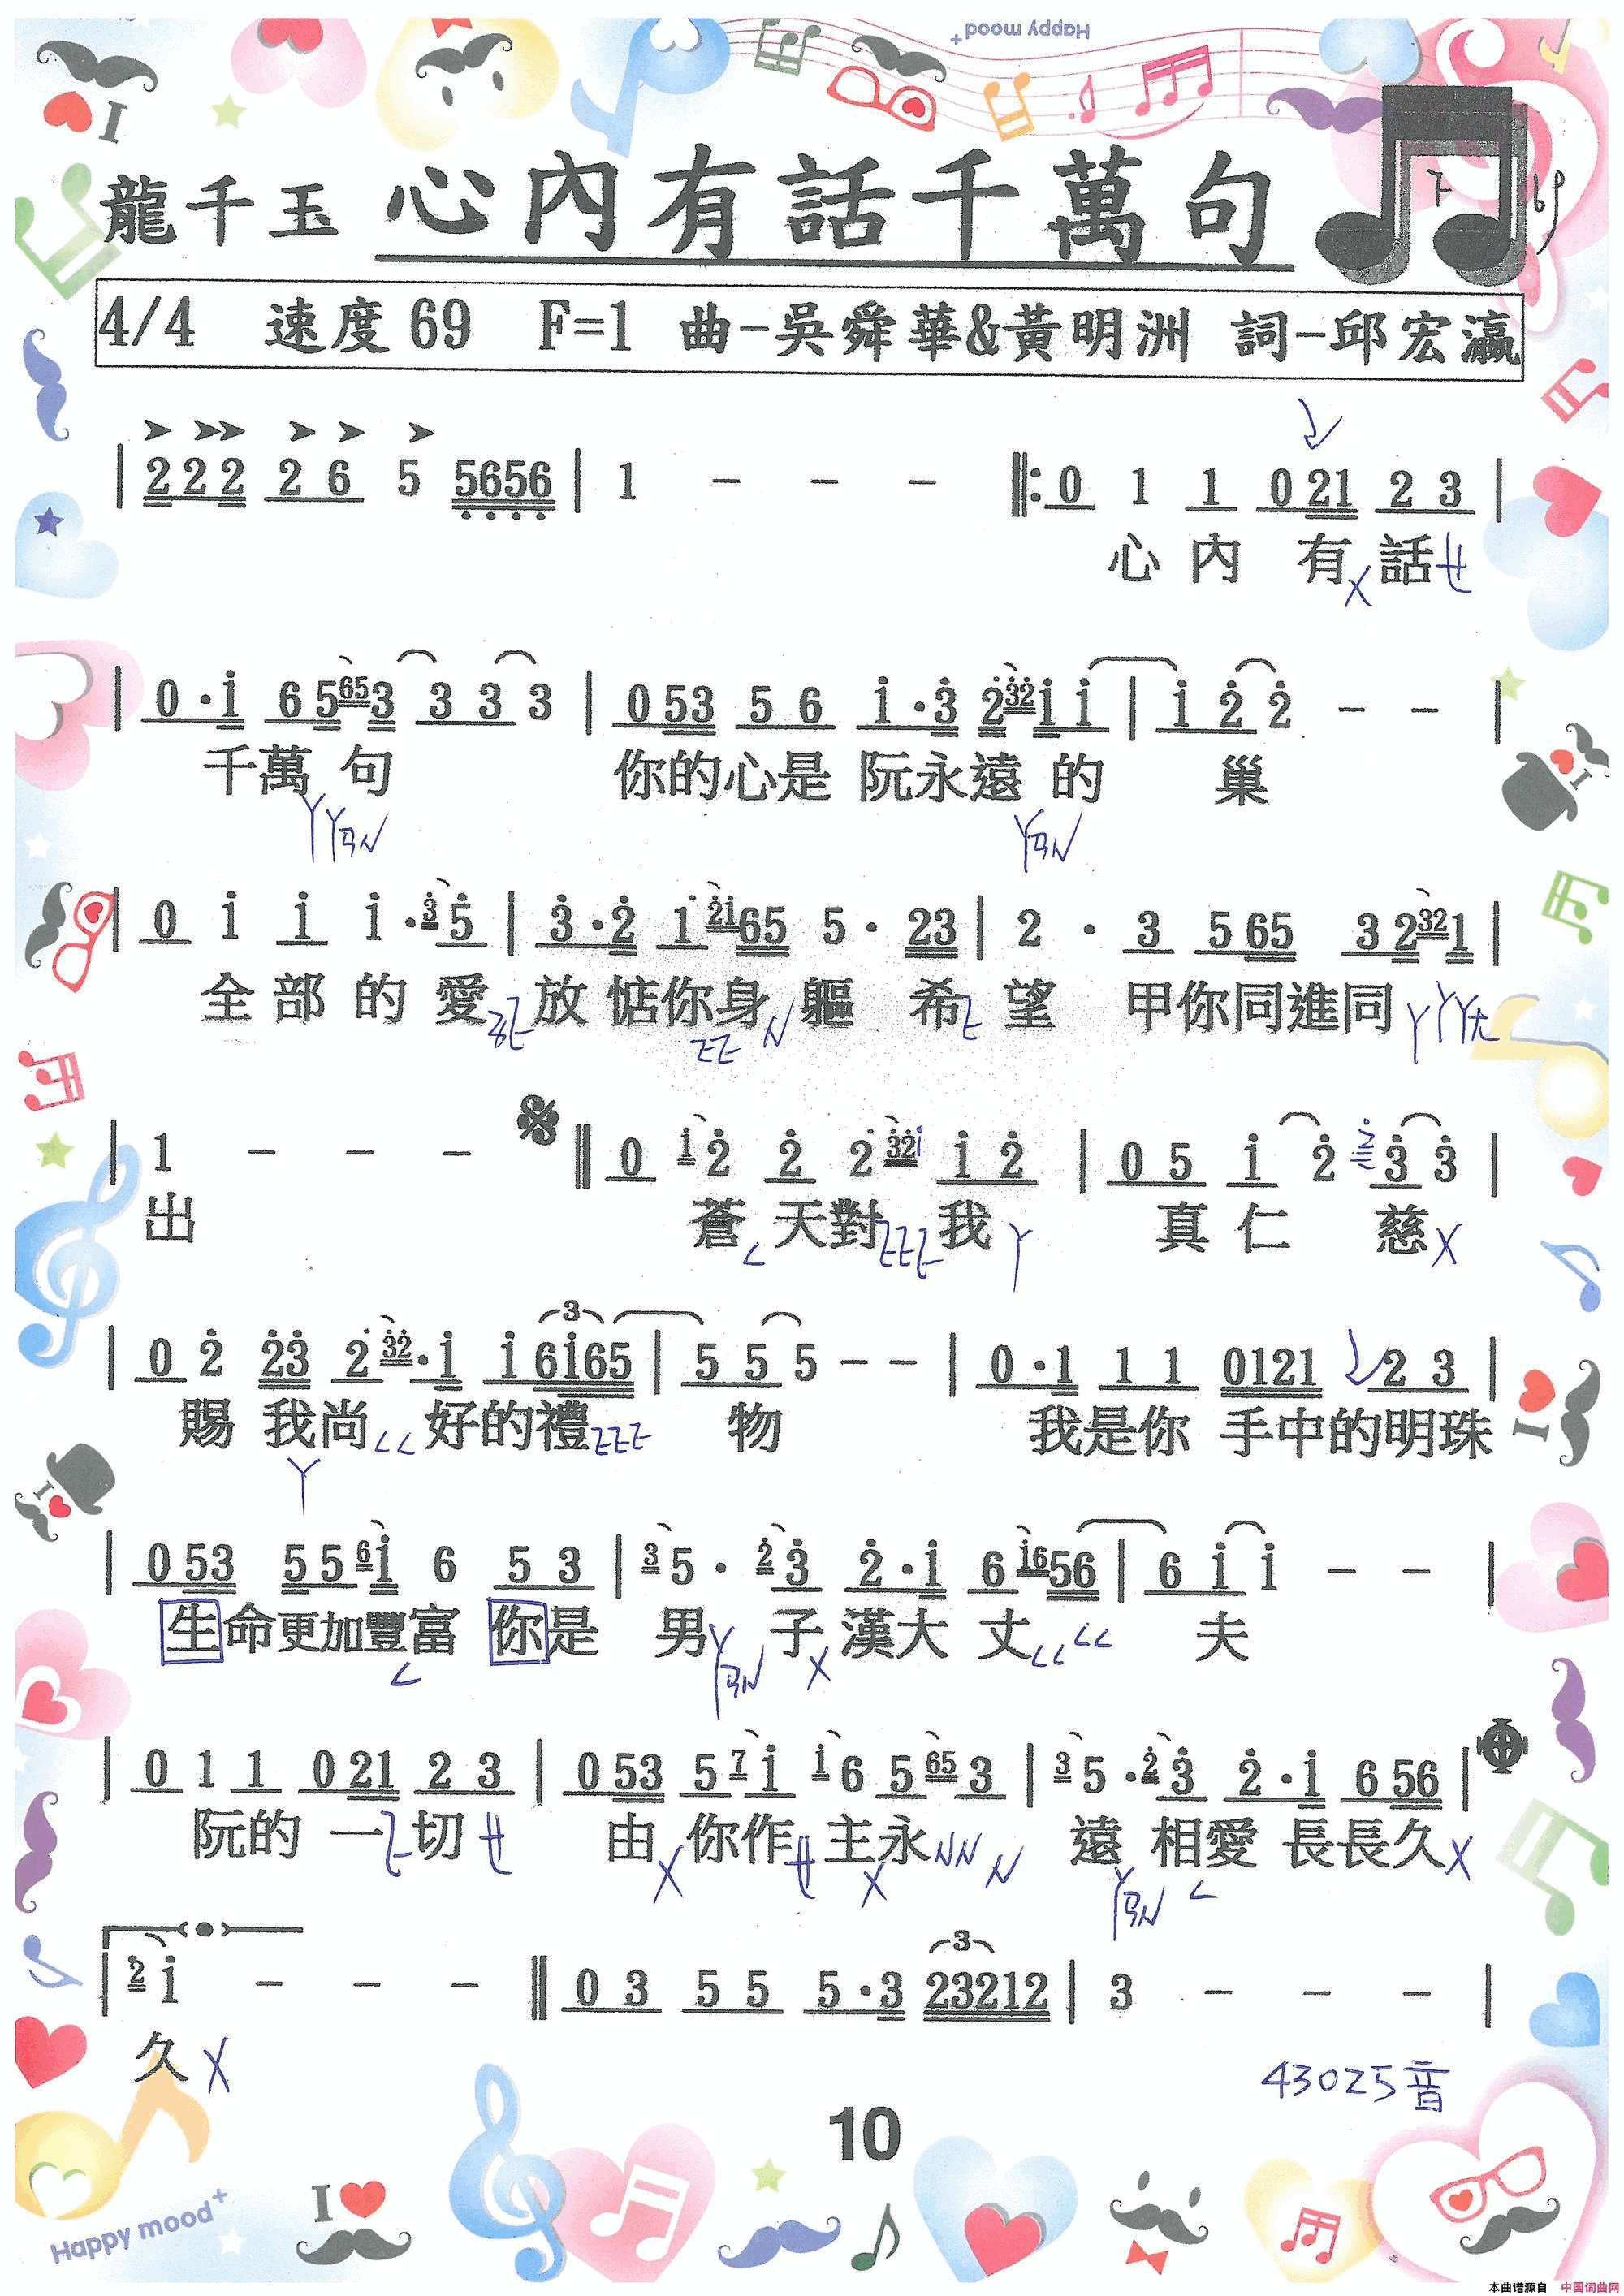 Happy mood+
龍千玉 心內有話千萬句
4/4 速度 69 F=1 曲-吳舜華&黃明洲 詞-邱宏瀛
| 2 2 2 2 6 5 5656 | 1 - - - ‖: 0 1 1 0 21 2 3 |
心 內 有 話
| 0 · 1 6 5 65 3 3 3 3 | 0 53 5 6 1 · 3 2 32 1 1 | 1 2 2 - - |
千萬 句 你的心是 阮永遠 的 巢
| 0 1 1 1 · 3 5 | 3 · 2 1 21 65 5 · 23 | 2 · 3 5 65 3 2 32 1 |
全 部 的 愛 放 惦你身 軀 希 望 甲你同進同
| 1 - - - 𝄋 ‖ 0 1 2 2 2 32 1 2 | 0 5 1 2 2 3 3 |
出 蒼 天對 我 真 仁 慈
| 0 2 23 2 32 · 1 1 6165 | 5 5 5 - - | 0 · 1 1 1 0121 2 3 |
賜 我尚 好的禮 物 我是你 手中的明珠
| 0 53 5 5 6 1 6 5 3 | 3 5 · 2 3 2 · 1 6 16 56 | 6 1 1 - - |
生命更加豐富 你是 男 子 漢大 丈 夫
| 0 1 1 0 21 2 3 | 0 53 5 7 1 1 6 5 65 3 | 3 5 · 2 3 2 · 1 6 56 | 𝄌
阮的 一 切 由 你作 主永 遠 相愛 長長久
| 2 1 - - - ‖ 0 3 5 5 5 · 3 23212 | 3 - - - |
久
43025音
10
Happy mood+
I
本曲谱源自 中国词曲网